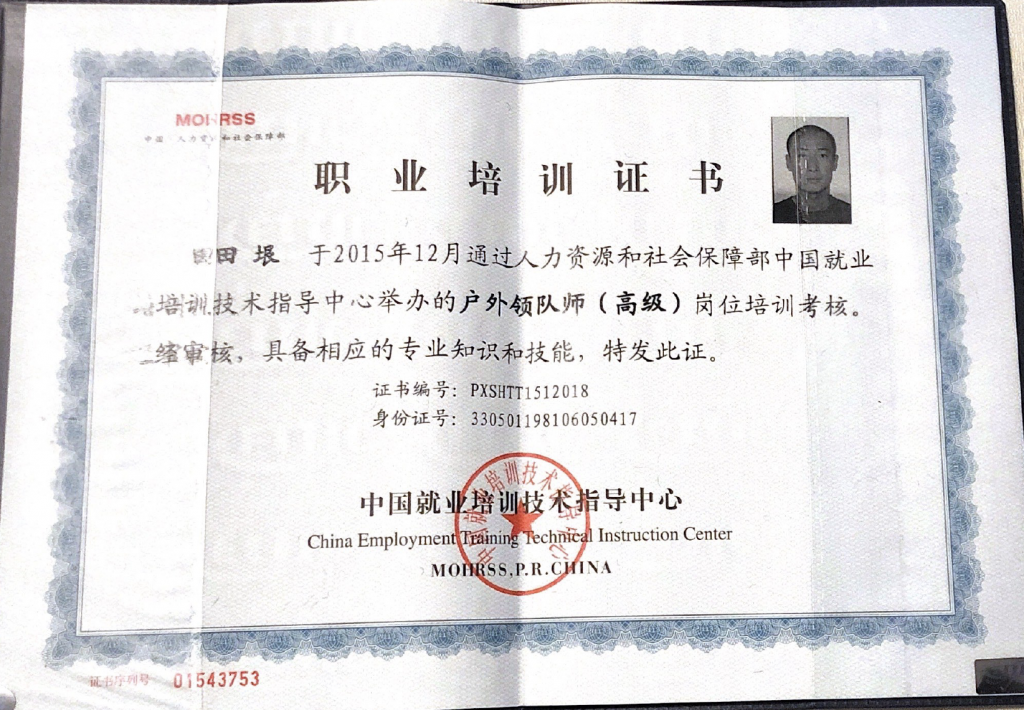 MOHRSS
中国 人力资源和社会保障部
职业培训证书
田垠 于2015年12月通过人力资源和社会保障部中国就业
培训技术指导中心举办的户外领队师（高级）岗位培训考核。
经审核，具备相应的专业知识和技能，特发此证。
证书编号：PXSHTT1512018
身份证号：330501198106050417
中国就业培训技术指导中心
中国就业培训技术指导中心
China Employment Training Technical Instruction Center
MOHRSS,P.R.CHINA
证书序列号 01543753